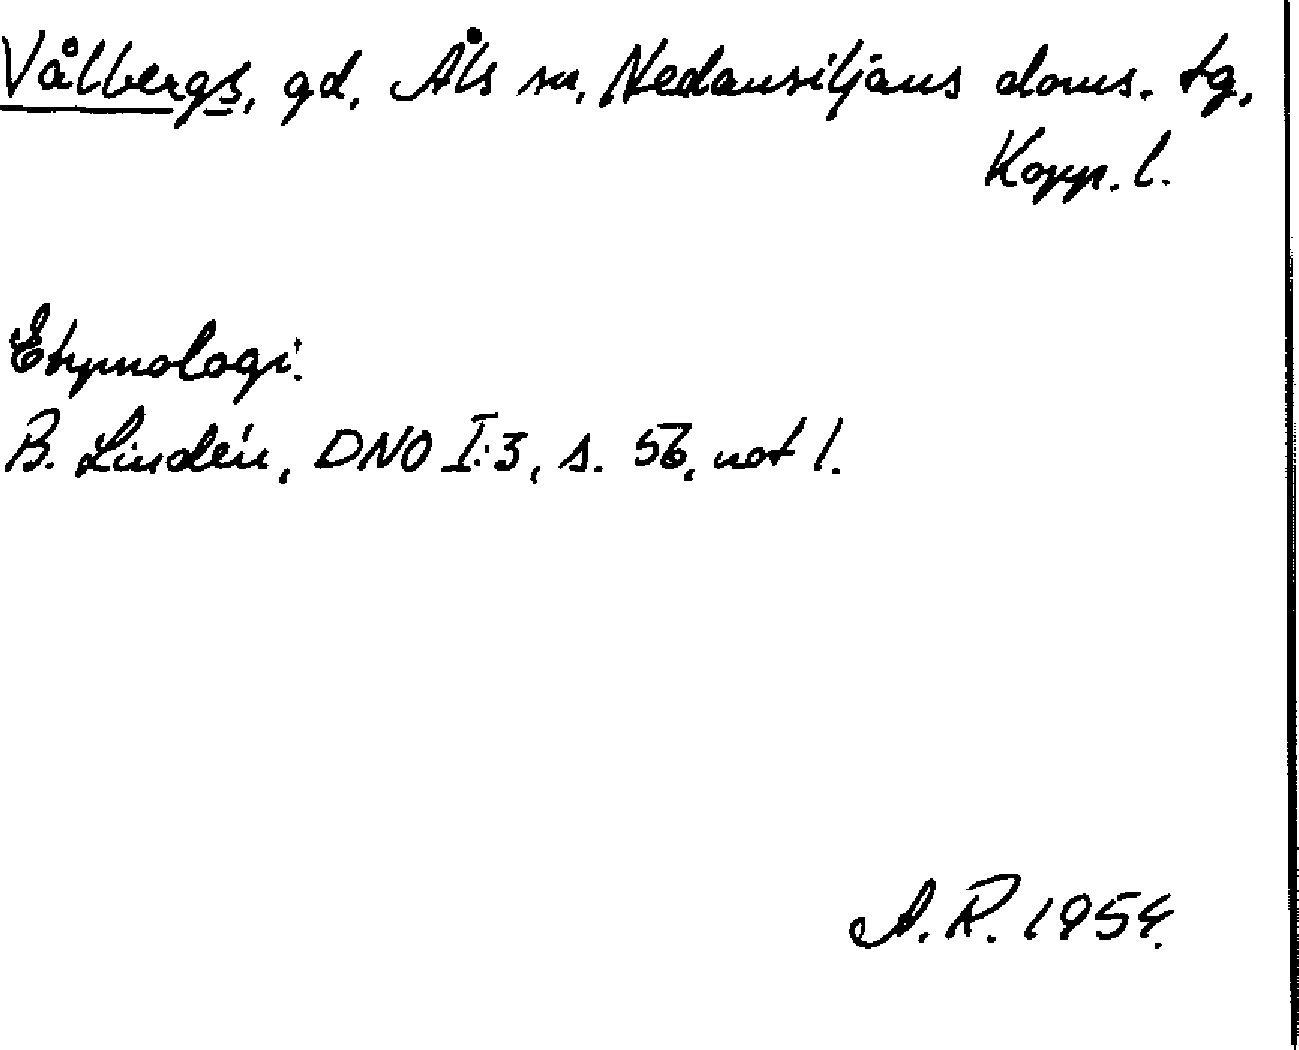 Vålbergs, gd, Åls sn, Nedansiljans doms. tg,
Kopp. l.
Etymologi:
B. Lindén, DNO I:3, s. 56, not 1.
A. R. 1954.